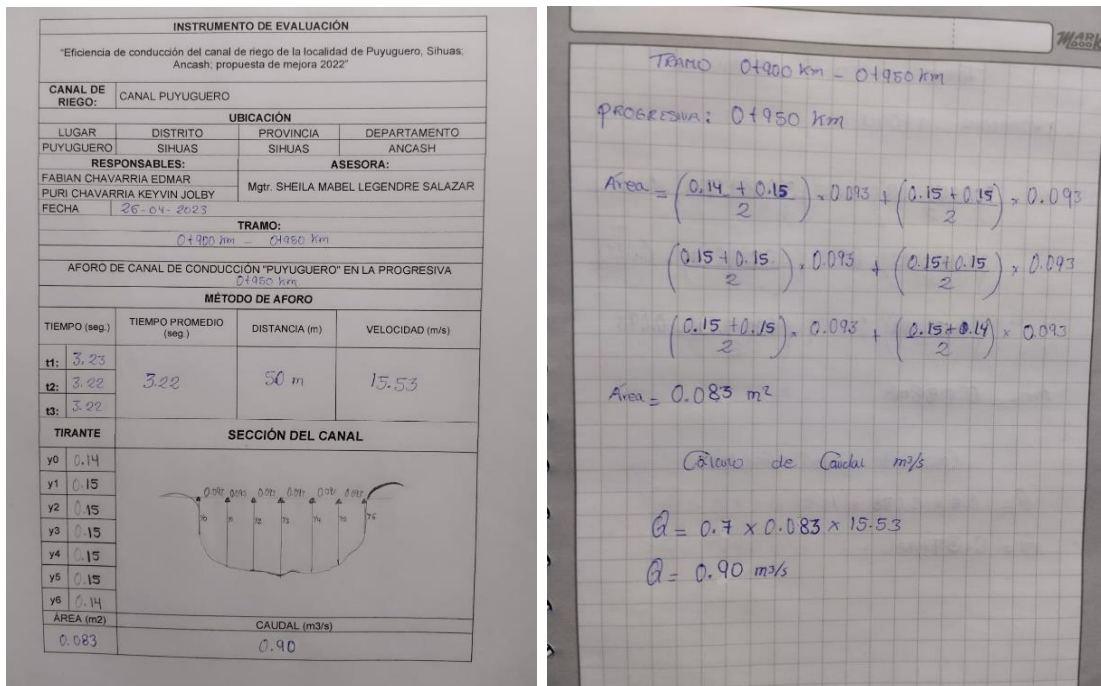 INSTRUMENTO DE EVALUACIÓN
"Eficiencia de conducción del canal de riego de la localidad de Puyuguero, Sihuas;
Ancash; propuesta de mejora 2022"
CANAL DE RIEGO: CANAL PUYUGUERO
UBICACIÓN
LUGAR DISTRITO PROVINCIA DEPARTAMENTO
PUYUGUERO SIHUAS SIHUAS ANCASH
RESPONSABLES: ASESORA:
FABIAN CHAVARRIA EDMAR
PURI CHAVARRIA KEYVIN JOLBY
Mgtr. SHEILA MABEL LEGENDRE SALAZAR
FECHA 26-04-2023
TRAMO:
0+900 km - 0+950 km
AFORO DE CANAL DE CONDUCCIÓN "PUYUGUERO" EN LA PROGRESIVA
0+950 km
MÉTODO DE AFORO
TIEMPO (seg.) TIEMPO PROMEDIO (seg.) DISTANCIA (m) VELOCIDAD (m/s)
t1: 3.23
t2: 3.22 3.22 50 m 15.53
t3: 3.22
TIRANTE SECCIÓN DEL CANAL
y0 0.14
y1 0.15
y2 0.15
y3 0.15
y4 0.15
y5 0.15
y6 0.14
0.093 0.093 0.093 0.093 0.093 0.093
y0 y1 y2 y3 y4 y5 y6
ÁREA (m2) CAUDAL (m3/s)
0.083 0.90
MARK BOOK
TRAMO 0+900 km - 0+950 km
PROGRESIVA: 0+950 km
Área = (0.14 + 0.15 / 2) × 0.093 + (0.15 + 0.15 / 2) × 0.093
(0.15 + 0.15 / 2) × 0.093 + (0.15 + 0.15 / 2) × 0.093
(0.15 + 0.15 / 2) × 0.093 + (0.15 + 0.14 / 2) × 0.093
Área = 0.083 m²
Cálculo de Caudal m³/s
Q = 0.7 × 0.083 × 15.53
Q = 0.90 m³/s